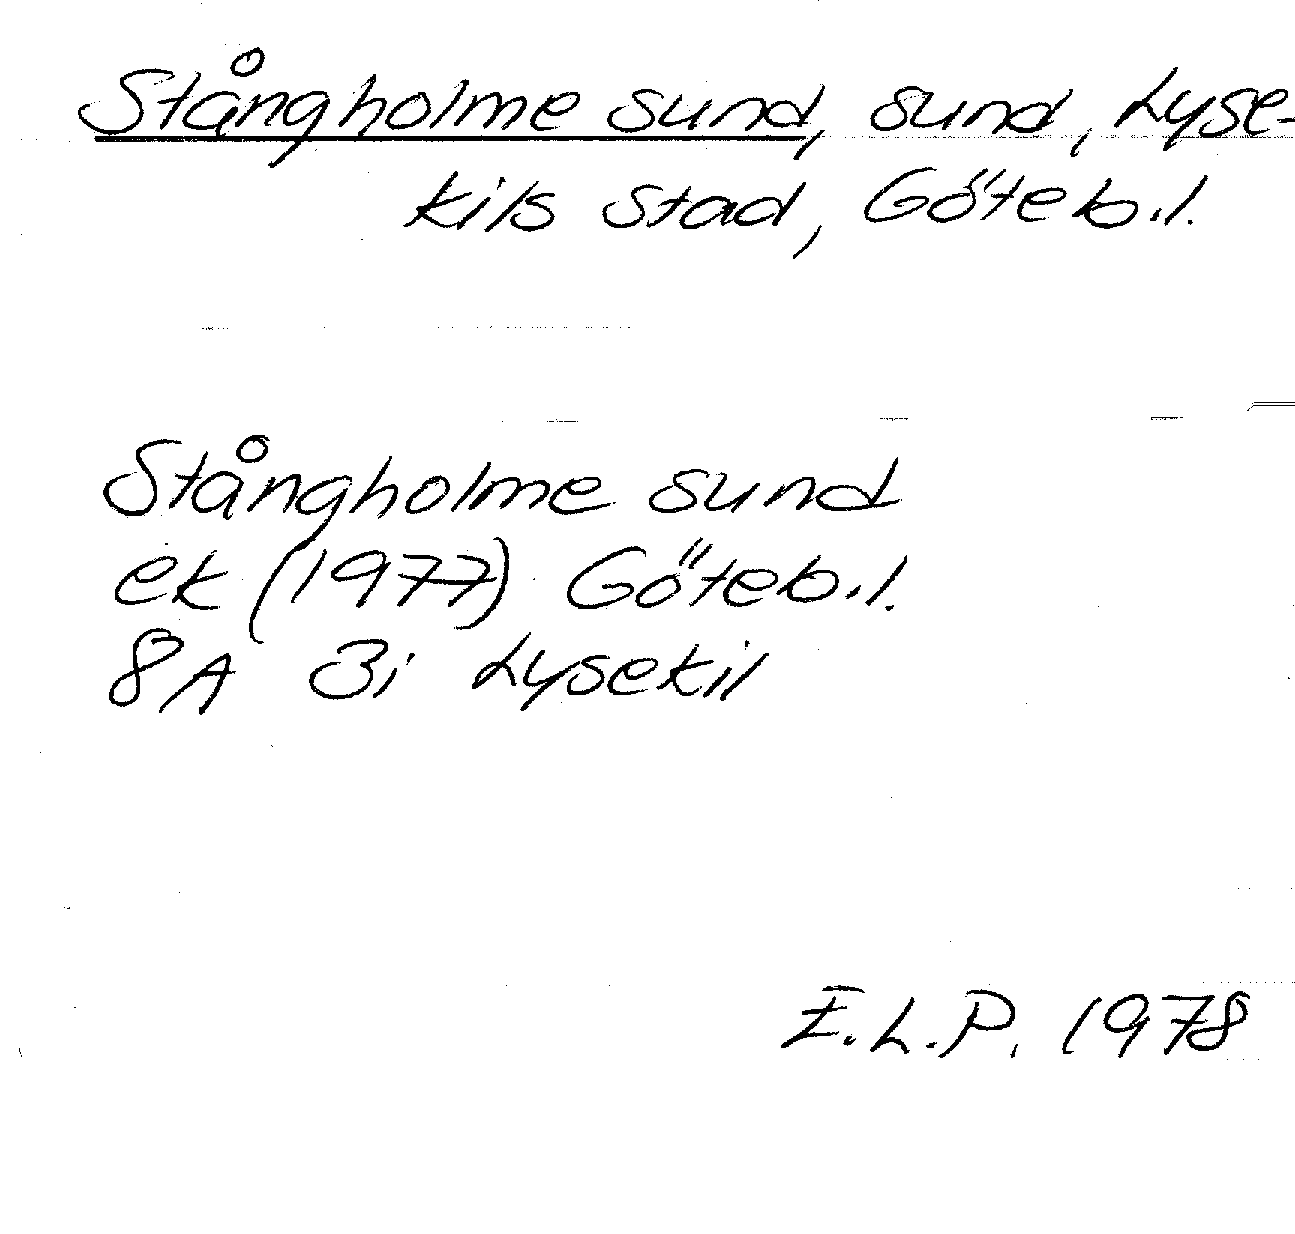 Stångholme sund, sund, Lyse-
kils stad, Göteb.l.
Stångholme sund
ek (1977) Göteb.l.
8A 3i Lysekil
E.L.P. 1978